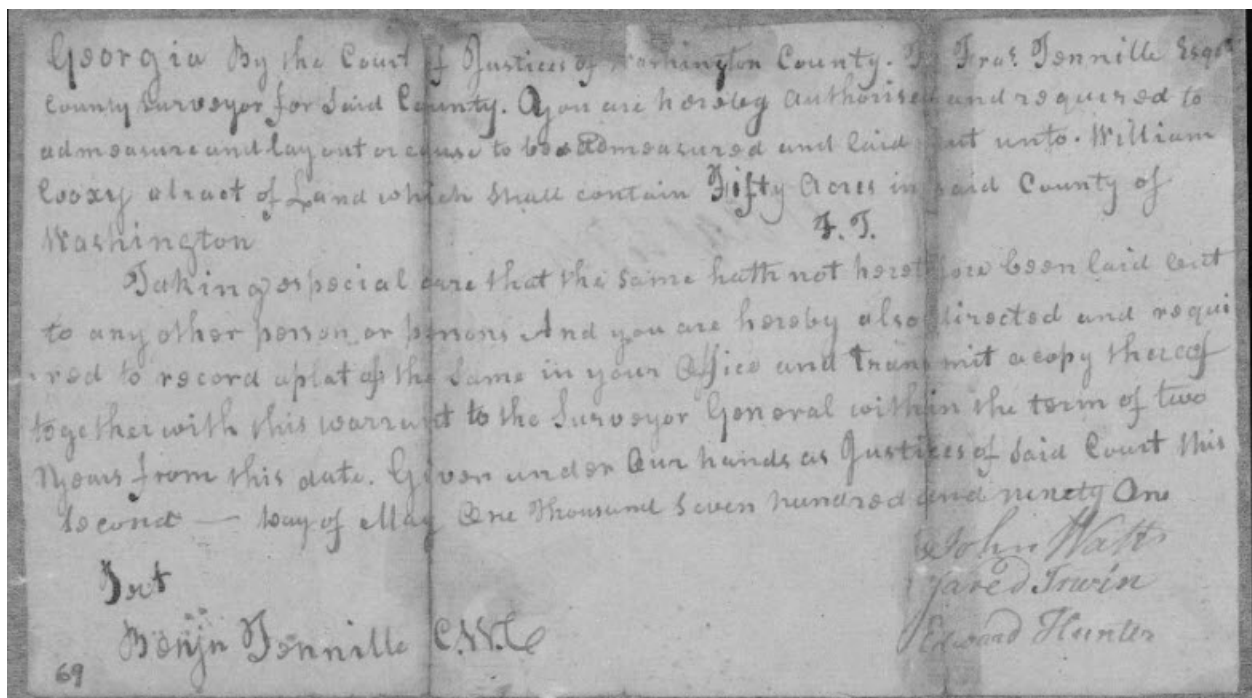 Georgia By the Court of Justices of Washington County. To Fra.s Tennille Esqr
County Surveyor for Said County. You are hereby authorised and required to
admeasure and lay out or cause to be admeasured and laid out unto. William
Cooxy a tract of Land which shall contain Fifty Acres in said County of
Washington
F. T.
Taking especial care that the same hath not heretofore been laid out
to any other person or persons And you are hereby also directed and requi
red to record a plat of the same in your Office and transmit a copy thereof
together with this warrant to the Surveyor General within the term of two
Years from this date. Given under Our hands as Justices of said Court this
second — Day of May One thousand seven hundred and ninety One
John Watts
Test
Jared Irwin
Benjn Tennille C.W.C
Edward Hunter
69